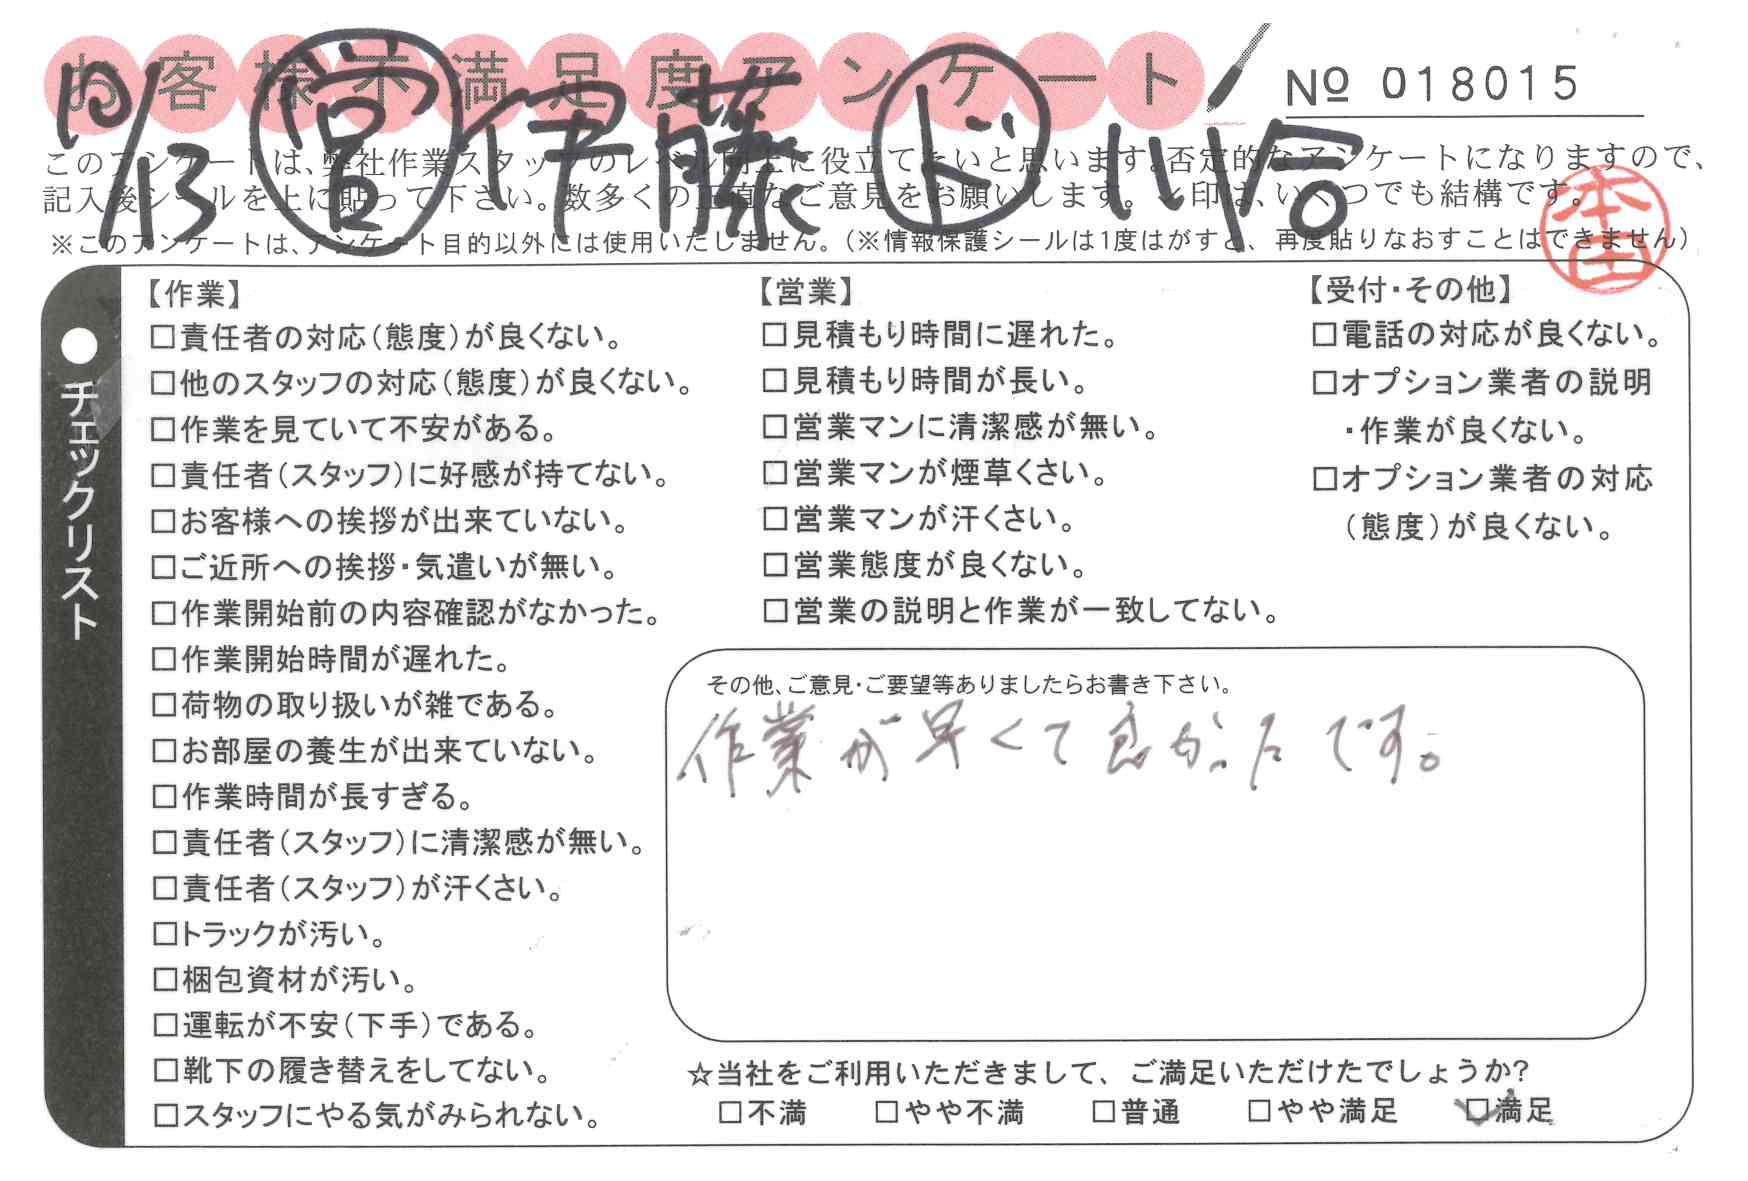 お客様不満足度アンケート
№ 018015
10/13 営 伊藤 ド 川合
このアンケートは、弊社作業スタッフのレベル向上に役立てたいと思います。否定的なアンケートになりますので、
記入後シールを上に貼って下さい。数多くの正直なご意見をお願いします。レ印は、いくつでも結構です。
※このアンケートは、アンケート目的以外には使用いたしません。（※情報保護シールは1度はがすと、再度貼りなおすことはできません）
本田
●チェックリスト
【作業】
□責任者の対応（態度）が良くない。
□他のスタッフの対応（態度）が良くない。
□作業を見ていて不安がある。
□責任者（スタッフ）に好感が持てない。
□お客様への挨拶が出来ていない。
□ご近所への挨拶・気遣いが無い。
□作業開始前の内容確認がなかった。
□作業開始時間が遅れた。
□荷物の取り扱いが雑である。
□お部屋の養生が出来ていない。
□作業時間が長すぎる。
□責任者（スタッフ）に清潔感が無い。
□責任者（スタッフ）が汗くさい。
□トラックが汚い。
□梱包資材が汚い。
□運転が不安（下手）である。
□靴下の履き替えをしてない。
□スタッフにやる気がみられない。
【営業】
□見積もり時間に遅れた。
□見積もり時間が長い。
□営業マンに清潔感が無い。
□営業マンが煙草くさい。
□営業マンが汗くさい。
□営業態度が良くない。
□営業の説明と作業が一致してない。
【受付・その他】
□電話の対応が良くない。
□オプション業者の説明
・作業が良くない。
□オプション業者の対応
（態度）が良くない。
その他、ご意見・ご要望等ありましたらお書き下さい。
作業が早くて良かったです。
☆当社をご利用いただきまして、ご満足いただけたでしょうか?
□不満 □やや不満 □普通 □やや満足 ☑満足